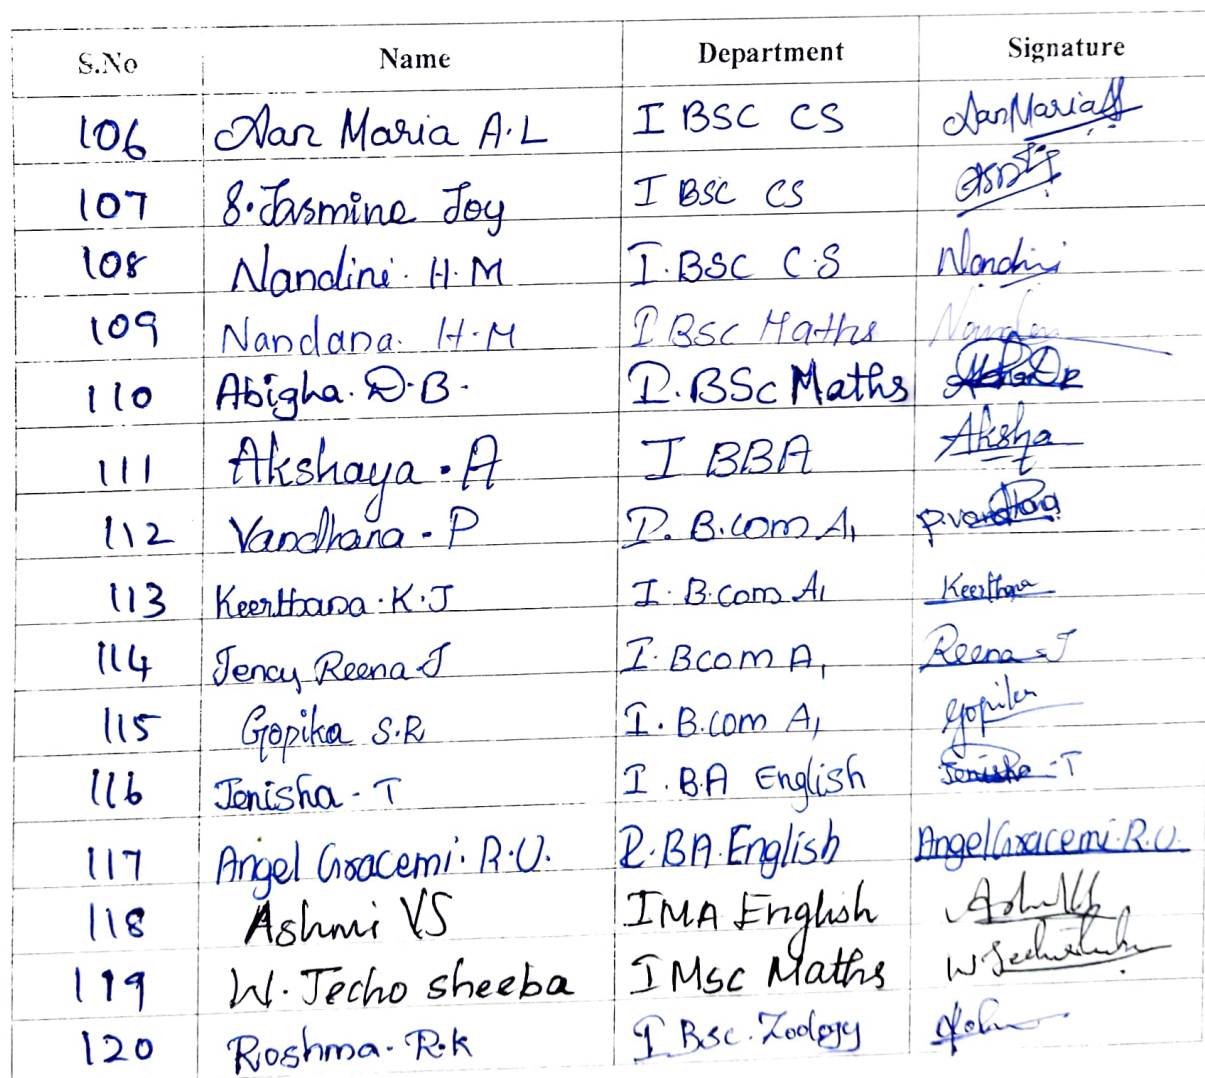 S.No Name Department Signature
106 Aan Maria A.L I BSC CS AanMaria
107 S.Jasmine Joy I BSC CS
108 Nandini. H.M I.BSC C.S Nandini
109 Nandana. H.M I BSc Maths
110 Abigha. D.B. I.BSc Maths
111 Akshaya.A I BBA Aksha
112 Vandhana.P I. B.com A1 P.Vandhana
113 Keerthana.K.J I. B.com A1 Keerthana
114 Jency Reena J I. Bcom A1 Reena J
115 Gopika S.R I. B.com A1 Gopika
116 Jenisha - T I .BA English Jenisha - T
117 Angel Gracemi. R.U. I.BA.English Angel Gracemi.R.U.
118 Ashmi VS I MA English
119 W.Jecho sheeba I Msc Maths
120 Roshma. R.K I Bsc.Zoology